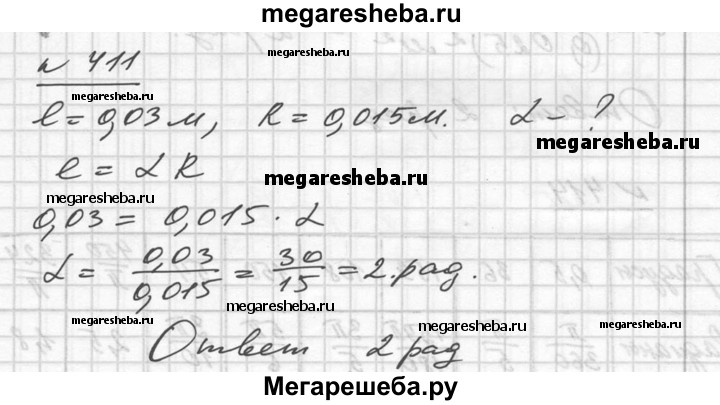 megaresheba.ru
№ 411
megaresheba.ru
l = 0,03 м, R = 0,015 м. α - ?
megaresheba.ru
l = α R
megaresheba.ru
megaresheba.ru
№ 414
0,03 = 0,015 · α
megaresheba.ru
α = 0,03/0,015 = 30/15 = 2 рад.
Градусы
megaresheba.ru
megaresheba.ru
megaresheba.ru
megaresheba.ru
Ответ 2 рад
Мегарешеба.ру